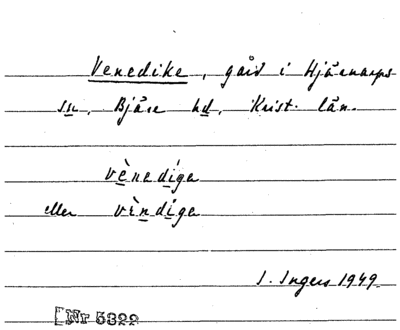 Venedike, gård i Hjärnarps
sn, Bjäre hd, Krist. län.
vènedíga
eller vìndíga
I. Ingers 1949
[Nr 5322